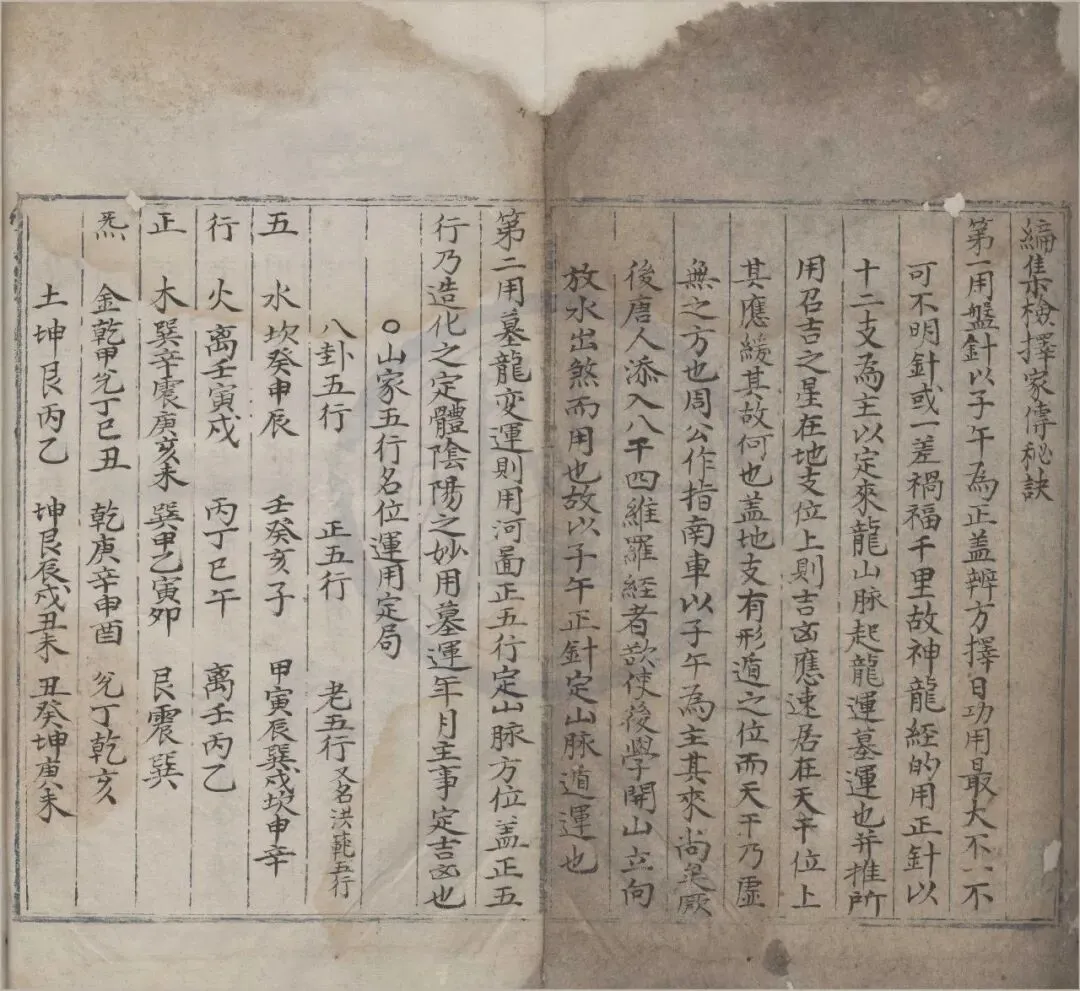 編集檢擇家傳秘訣
第一用盤針以子午為正盖辨方擇日功用最大不不
可不明針或一差禍福千里故神龍經的用正針以
十二支為主以定來龍山脉起龍運墓運也并推所
用召吉之星在地支位上則吉凶應速居在天干位上
其應緩其故何也盖地支有形遁之位而天干乃虛
無之方也周公作指南車以子午為主其來尚矣厥
後唐人添入八干四維羅經者欲使後學開山立向
放水出煞而用也故以子午正針定山脉遁運也
第二用墓龍变運則用河啚正五行定山脉方位盖正五
行乃造化之定體陰陽之妙用墓運年月主事定吉凶也
○山家五行名位運用定局
八卦五行 正五行 老五行又名洪範五行
五 水坎癸申辰 壬癸亥子 甲寅辰巽戌坎申辛
行 火离壬寅戌 丙丁巳午 离壬丙乙
正 木巽辛震庚亥未 巽甲乙寅卯 艮震巽
炁 金乾甲兊丁巳丑 乾庚辛申酉 兊丁乾亥
土坤艮丙乙 坤艮辰戌丑未 丑癸坤庚未